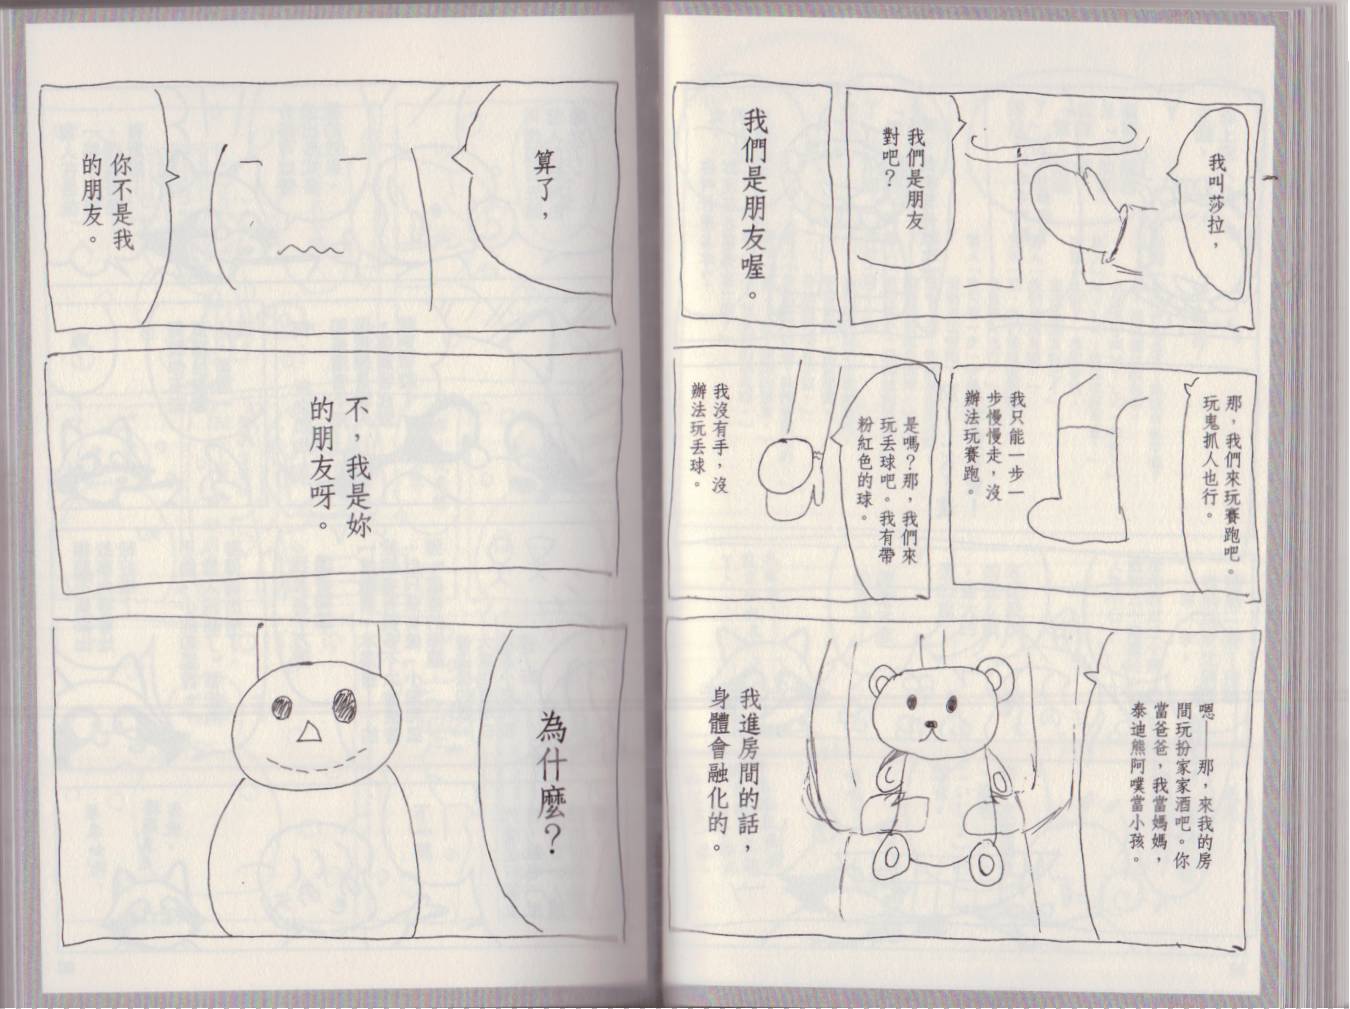 我叫莎拉，
我們是朋友
對吧？
我們是朋友喔。
那，我們來玩賽跑吧。
玩鬼抓人也行。
我只能一步一
步慢慢走，沒
辦法玩賽跑。
是嗎？那，我們來
玩丟球吧。我有帶
粉紅色的球。
我沒有手，沒
辦法玩丟球。
嗯——那，來我的房
間玩扮家家酒吧。你
當爸爸，我當媽媽，
泰迪熊阿噗當小孩。
我進房間的話，
身體會融化的。
算了，
你不是我
的朋友。
不，我是妳
的朋友呀。
為什麼？